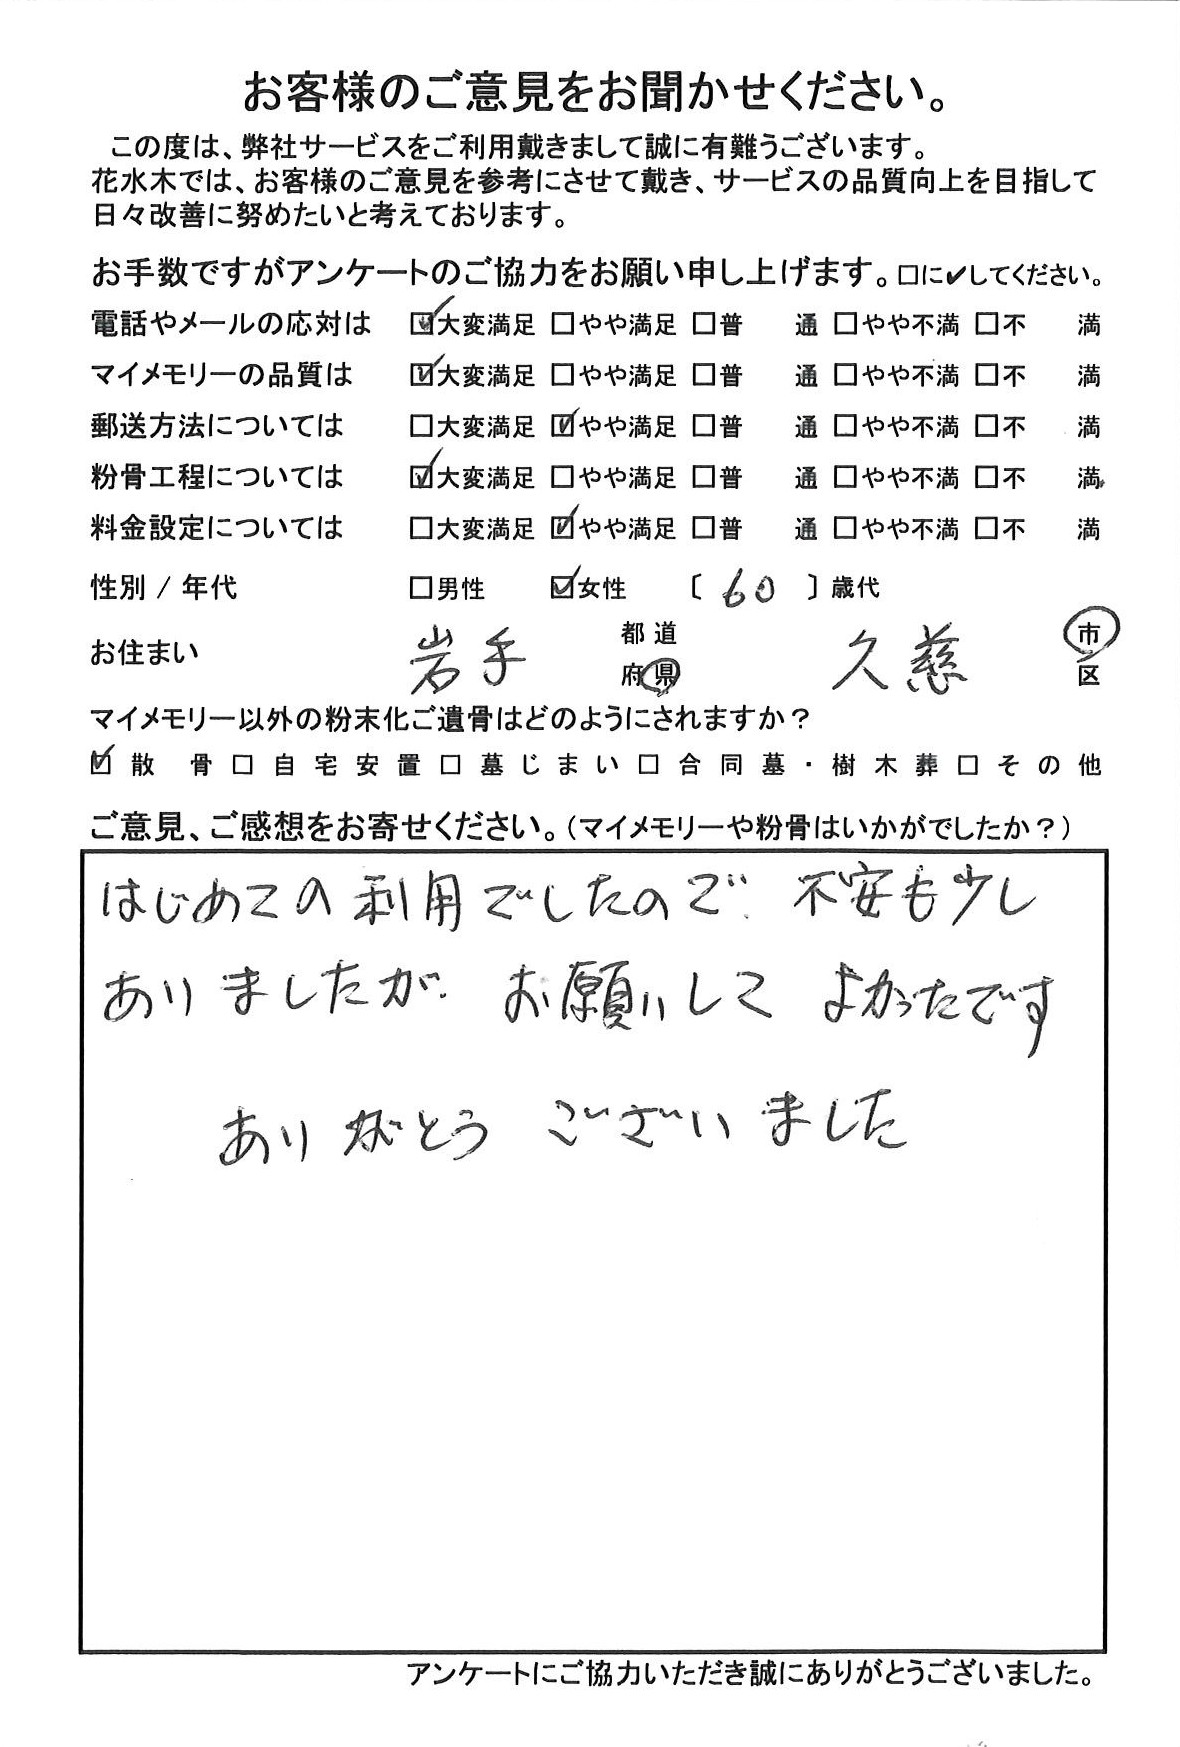 お客様のご意見をお聞かせください。
この度は、弊社サービスをご利用戴きまして誠に有難うございます。
花水木では、お客様のご意見を参考にさせて戴き、サービスの品質向上を目指して
日々改善に努めたいと考えております。
お手数ですがアンケートのご協力をお願い申し上げます。□に✔してください。
電話やメールの応対は ☑大変満足 □やや満足 □普 通 □やや不満 □不 満
マイメモリーの品質は ☑大変満足 □やや満足 □普 通 □やや不満 □不 満
郵送方法については □大変満足 ☑やや満足 □普 通 □やや不満 □不 満
粉骨工程については ☑大変満足 □やや満足 □普 通 □やや不満 □不 満
料金設定については □大変満足 ☑やや満足 □普 通 □やや不満 □不 満
性別 / 年代 □男性 ☑女性 〔 60 〕歳代
お住まい 岩手 都道府県 久慈 市区
マイメモリー以外の粉末化ご遺骨はどのようにされますか？
☑散 骨 □自宅安置 □墓じまい □合同墓・樹木葬 □その他
ご意見、ご感想をお寄せください。（マイメモリーや粉骨はいかがでしたか？）
はじめての利用でしたので、不安も少し
ありましたが、お願いして よかったです
ありがとう ございました
アンケートにご協力いただき誠にありがとうございました。